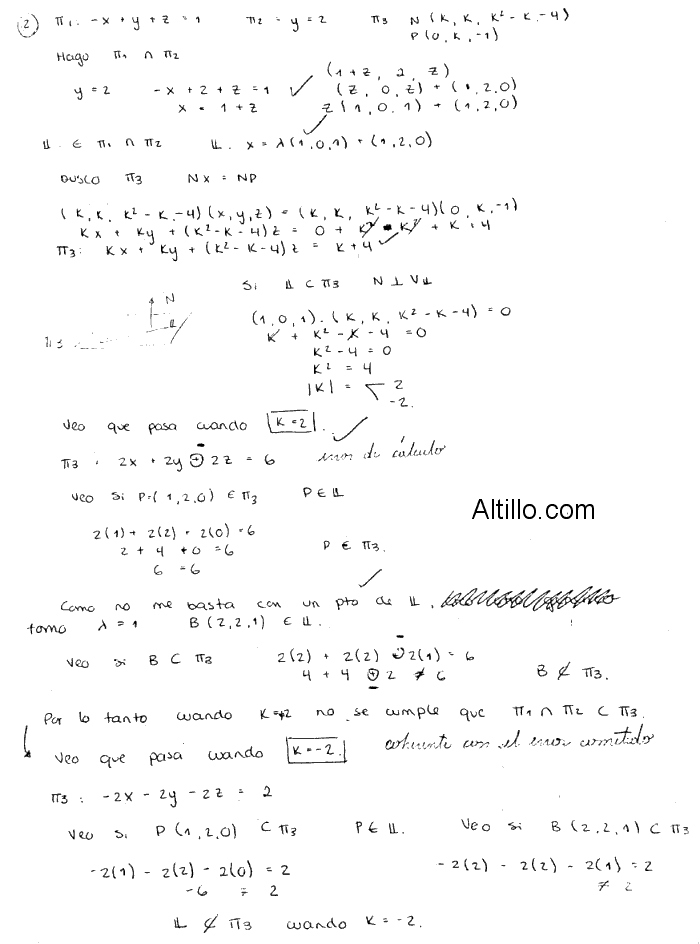 2) π1: -x + y + z = 1   π2 - y = 2   π3 N(K, K, K² - K - 4)
P(0, K, -1)
Hago π1 ∩ π2
(1+z, 2, z)
y = 2   -x + 2 + z = 1 ✓ (z, 0, z) + (1, 2, 0)
x = 1 + z   z(1, 0, 1) + (1, 2, 0)
𝕃 ∈ π1 ∩ π2   𝕃. x = λ(1, 0, 1) + (1, 2, 0)
Busco π3   Nx = NP
(K, K, K² - K - 4)(x, y, z) = (K, K, K² - K - 4)(0, K, -1)
Kx + Ky + (K² - K - 4)z = 0 + K² - K² + K + 4
π3: Kx + Ky + (K² - K - 4)z = K + 4 ✓
Si 𝕃 ⊂ π3   N ⊥ V𝕃
N
𝕃
π3
(1, 0, 1) . (K, K, K² - K - 4) = 0
K + K² - K - 4 = 0
K² - 4 = 0
K² = 4
|K| = 2
-2.
Veo que pasa cuando K = 2. ✓
π3: 2x + 2y + 2z = 6   error de cálculo
-
Veo si P=(1, 2, 0) ∈ π3   P ∈ 𝕃
Altillo.com
2(1) + 2(2) + 2(0) = 6
2 + 4 + 0 = 6   P ∈ π3.
6 = 6
✓
Como no me basta con un pto de 𝕃.
tomo λ = 1   B(2, 2, 1) ∈ 𝕃.
Veo si B ⊂ π3   2(2) + 2(2) + 2(1) = 6
-
4 + 4 + 2 ≠ 6   B ⊄ π3.
-
Por lo tanto cuando K=+2 no se cumple que π1 ∩ π2 ⊂ π3.
Veo que pasa cuando K = -2.   coherente con el error cometido
π3: -2x - 2y - 2z = 2
Veo si P(1, 2, 0) ⊂ π3   P ∈ 𝕃.   Veo si B(2, 2, 1) ⊂ π3
-2(1) - 2(2) - 2(0) = 2   -2(2) - 2(2) - 2(1) = 2
-6 ≠ 2   ≠ 2
𝕃 ⊄ π3 cuando K = -2.